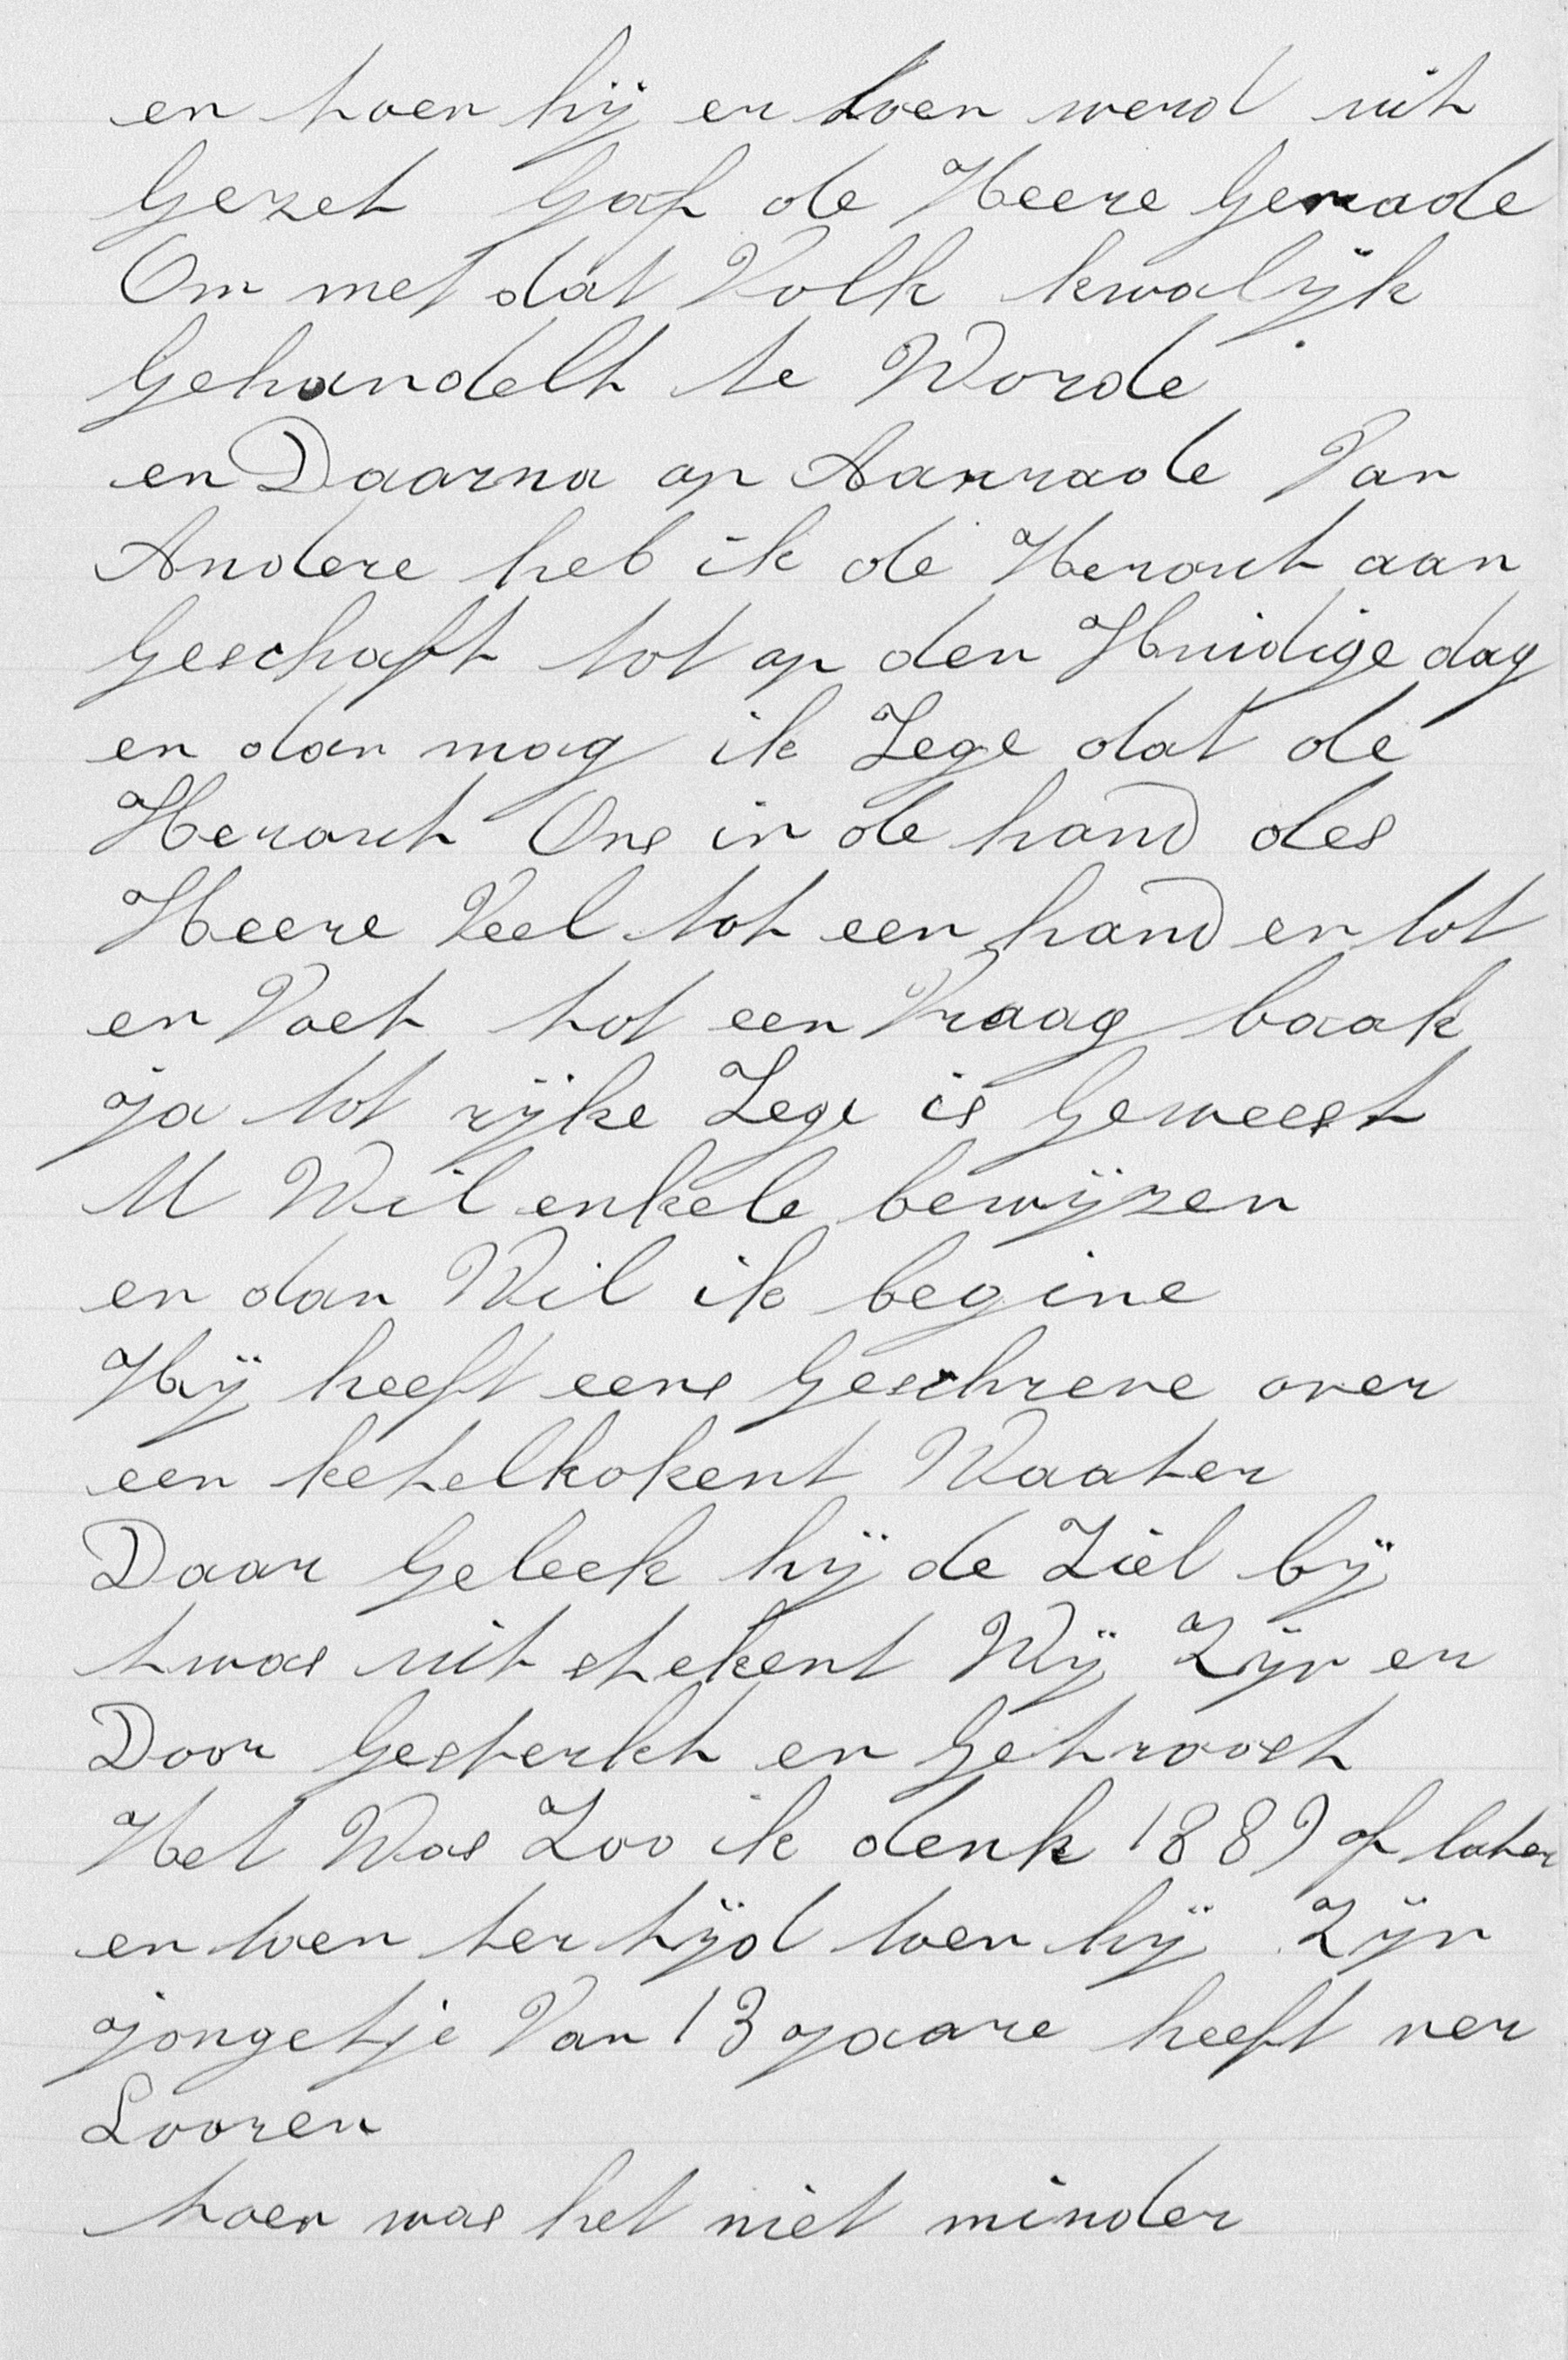 en toen hij er toen werd uit
Gezet Gaf de Heere Genade
Om met dat Volk kwalijk
Gehandelt te Worde
en Daarna op Aanrade Van
Andere heb ik de Heraut aan
Geschaft tot op den Huidige dag
en dan mag ik Zege dat de
Heraut Ons in de hand des
Heere Veel tot een hand en tot
en Voet tot een Vraag baak
ja tot rijke Zege is Geweest
U Wil enkele bewijzen
en dan Wil ik begine
Hij heeft eens Geschreve over
een ketelkokent Waater
Daar Geleek hij de Ziel bij
twas uit stekent Wij Zijn er
Door Gesterkt en Getroost
Het Was Zoo ik denk 1889 of later
en toen ter tijd toen hij Zijn
jongetje Van 13 jaare heeft ver
Looren
toen was het niet minder